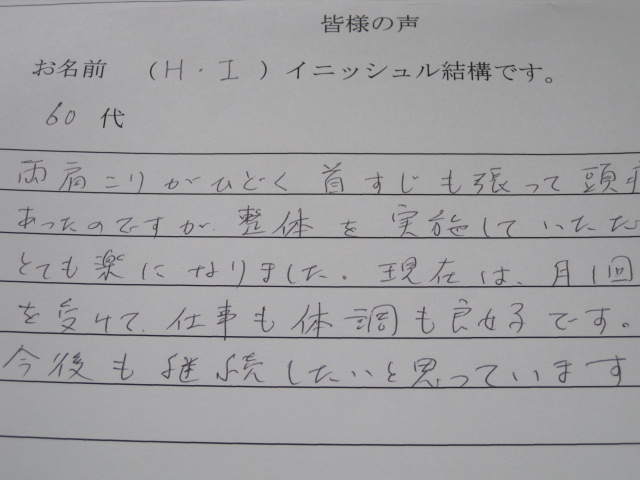 皆様の声
お名前 (H・I)イニッシュル結構です。
60 代
両肩こりがひどく 首すじも張って頭
あったのですが、整体を実施していただ
とても楽になりました。現在は、月1回
を受けて、仕事も体調も良好です。
今後も継続したいと思っています